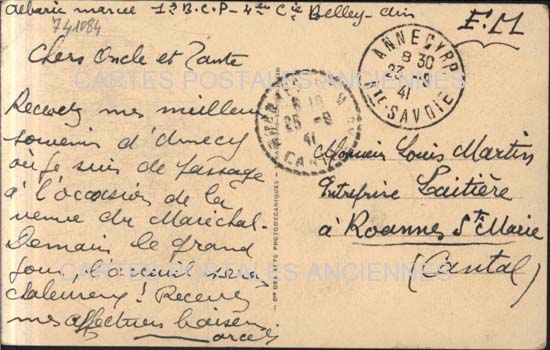 debarie marcel 1er B.C.P - 4eme Cie Belley - Ain
741084
F.M
Chers Oncle et Tante
Recevez mes meilleurs
souvenirs d'Annecy
où je suis de passage
à l'occasion de la
venue du Maréchal.
Demain le grand
jour, l'accueil sera
chaleureux! Recevez
mes affectueux baisers
Marcel
ANNECY RP
8 30
23 -9
41
Hte SAVOIE
25 -9
41
CANTAL
Monsieur Louis Martin
Entreprise Laitière
à Roannes Ste Marie
(Cantal)
CARTES POSTALES ANCIENNES
CARTES POSTALES ANCIENNES